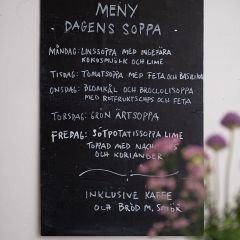 MENY
- DAGENS SOPPA -
MÅNDAG: LINSSOPPA MED INGEFÄRA
KOKOSMJÖLK OCH LIME
TISDAG: TOMATSOPPA MED FETA OCH BASILIKA
ONSDAG: BLOMKÅL OCH BROCCOLISOPPA
MED ROTFRUKTSCHIPS OCH FETA
TORSDAG: GRÖN ÄRTSOPPA
FREDAG: SÖTPOTATISSOPPA LIME
TOPPAD MED NACHOS
OCH KORIANDER
INKLUSIVE KAFFE
OCH BRÖD M. SMÖR